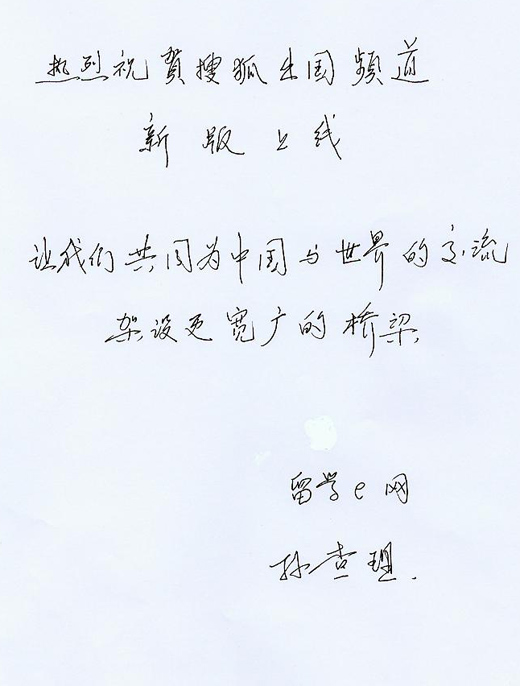 热烈祝賀搜狐出国频道
新版上线
让我们共同为中国与世界的交流
架设更宽广的桥梁
留学e网
孙查理.